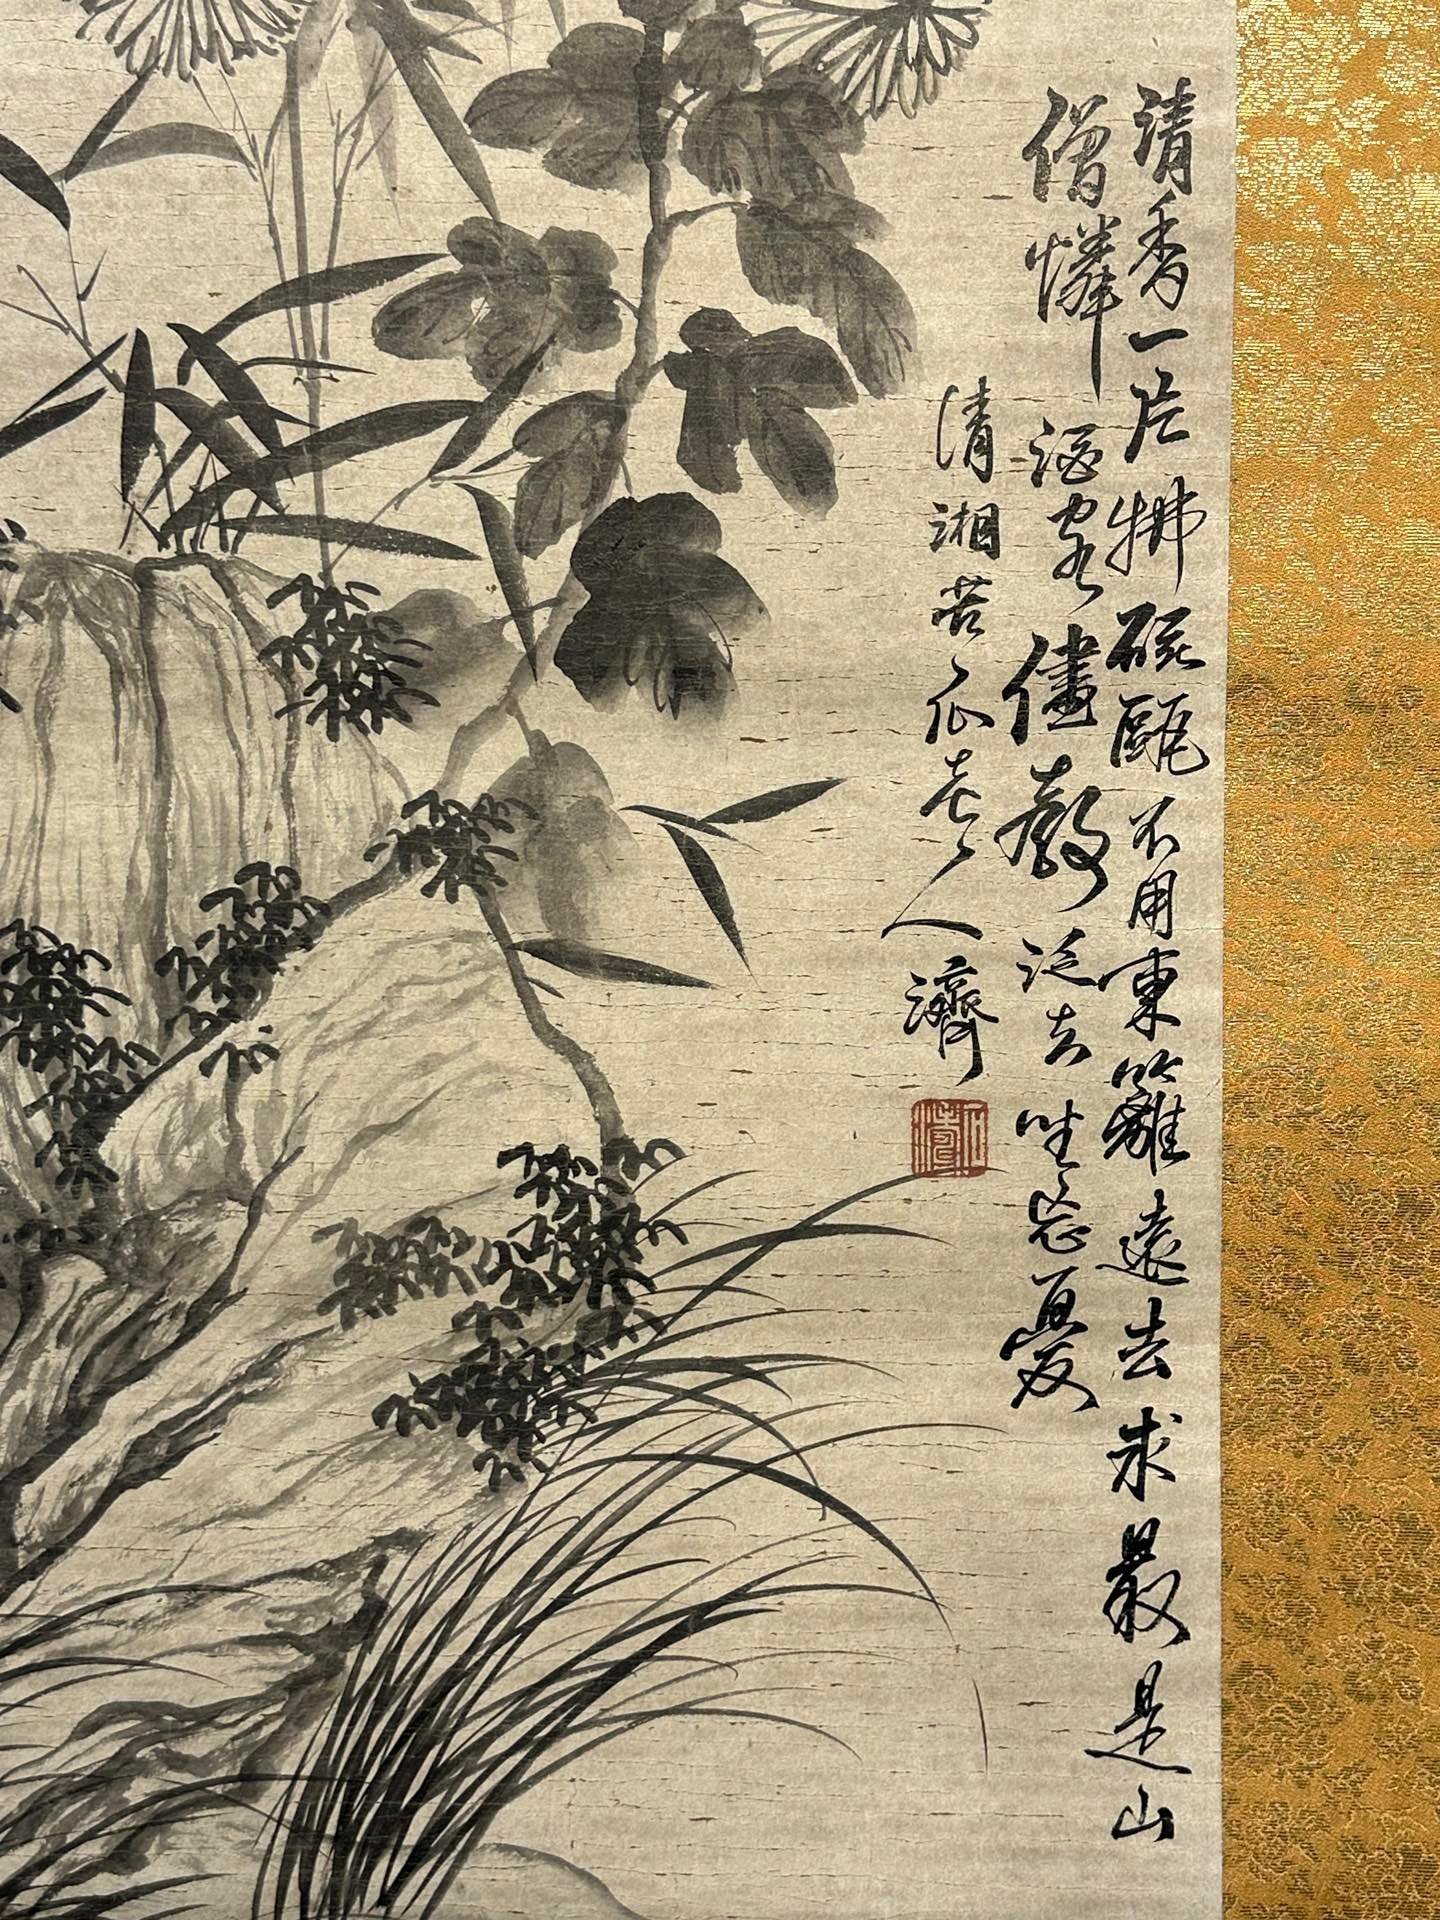 清香一片拂砚甌不用東籬遠去求最是山
僧憐酒客儘教泛去坐忘憂
清湘苦瓜老人濟